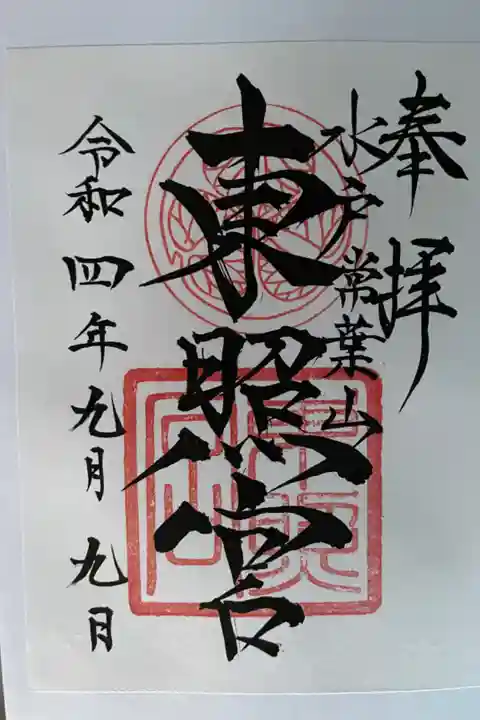 奉拝
水戸常葉山
東照宮
令和四年九月九日